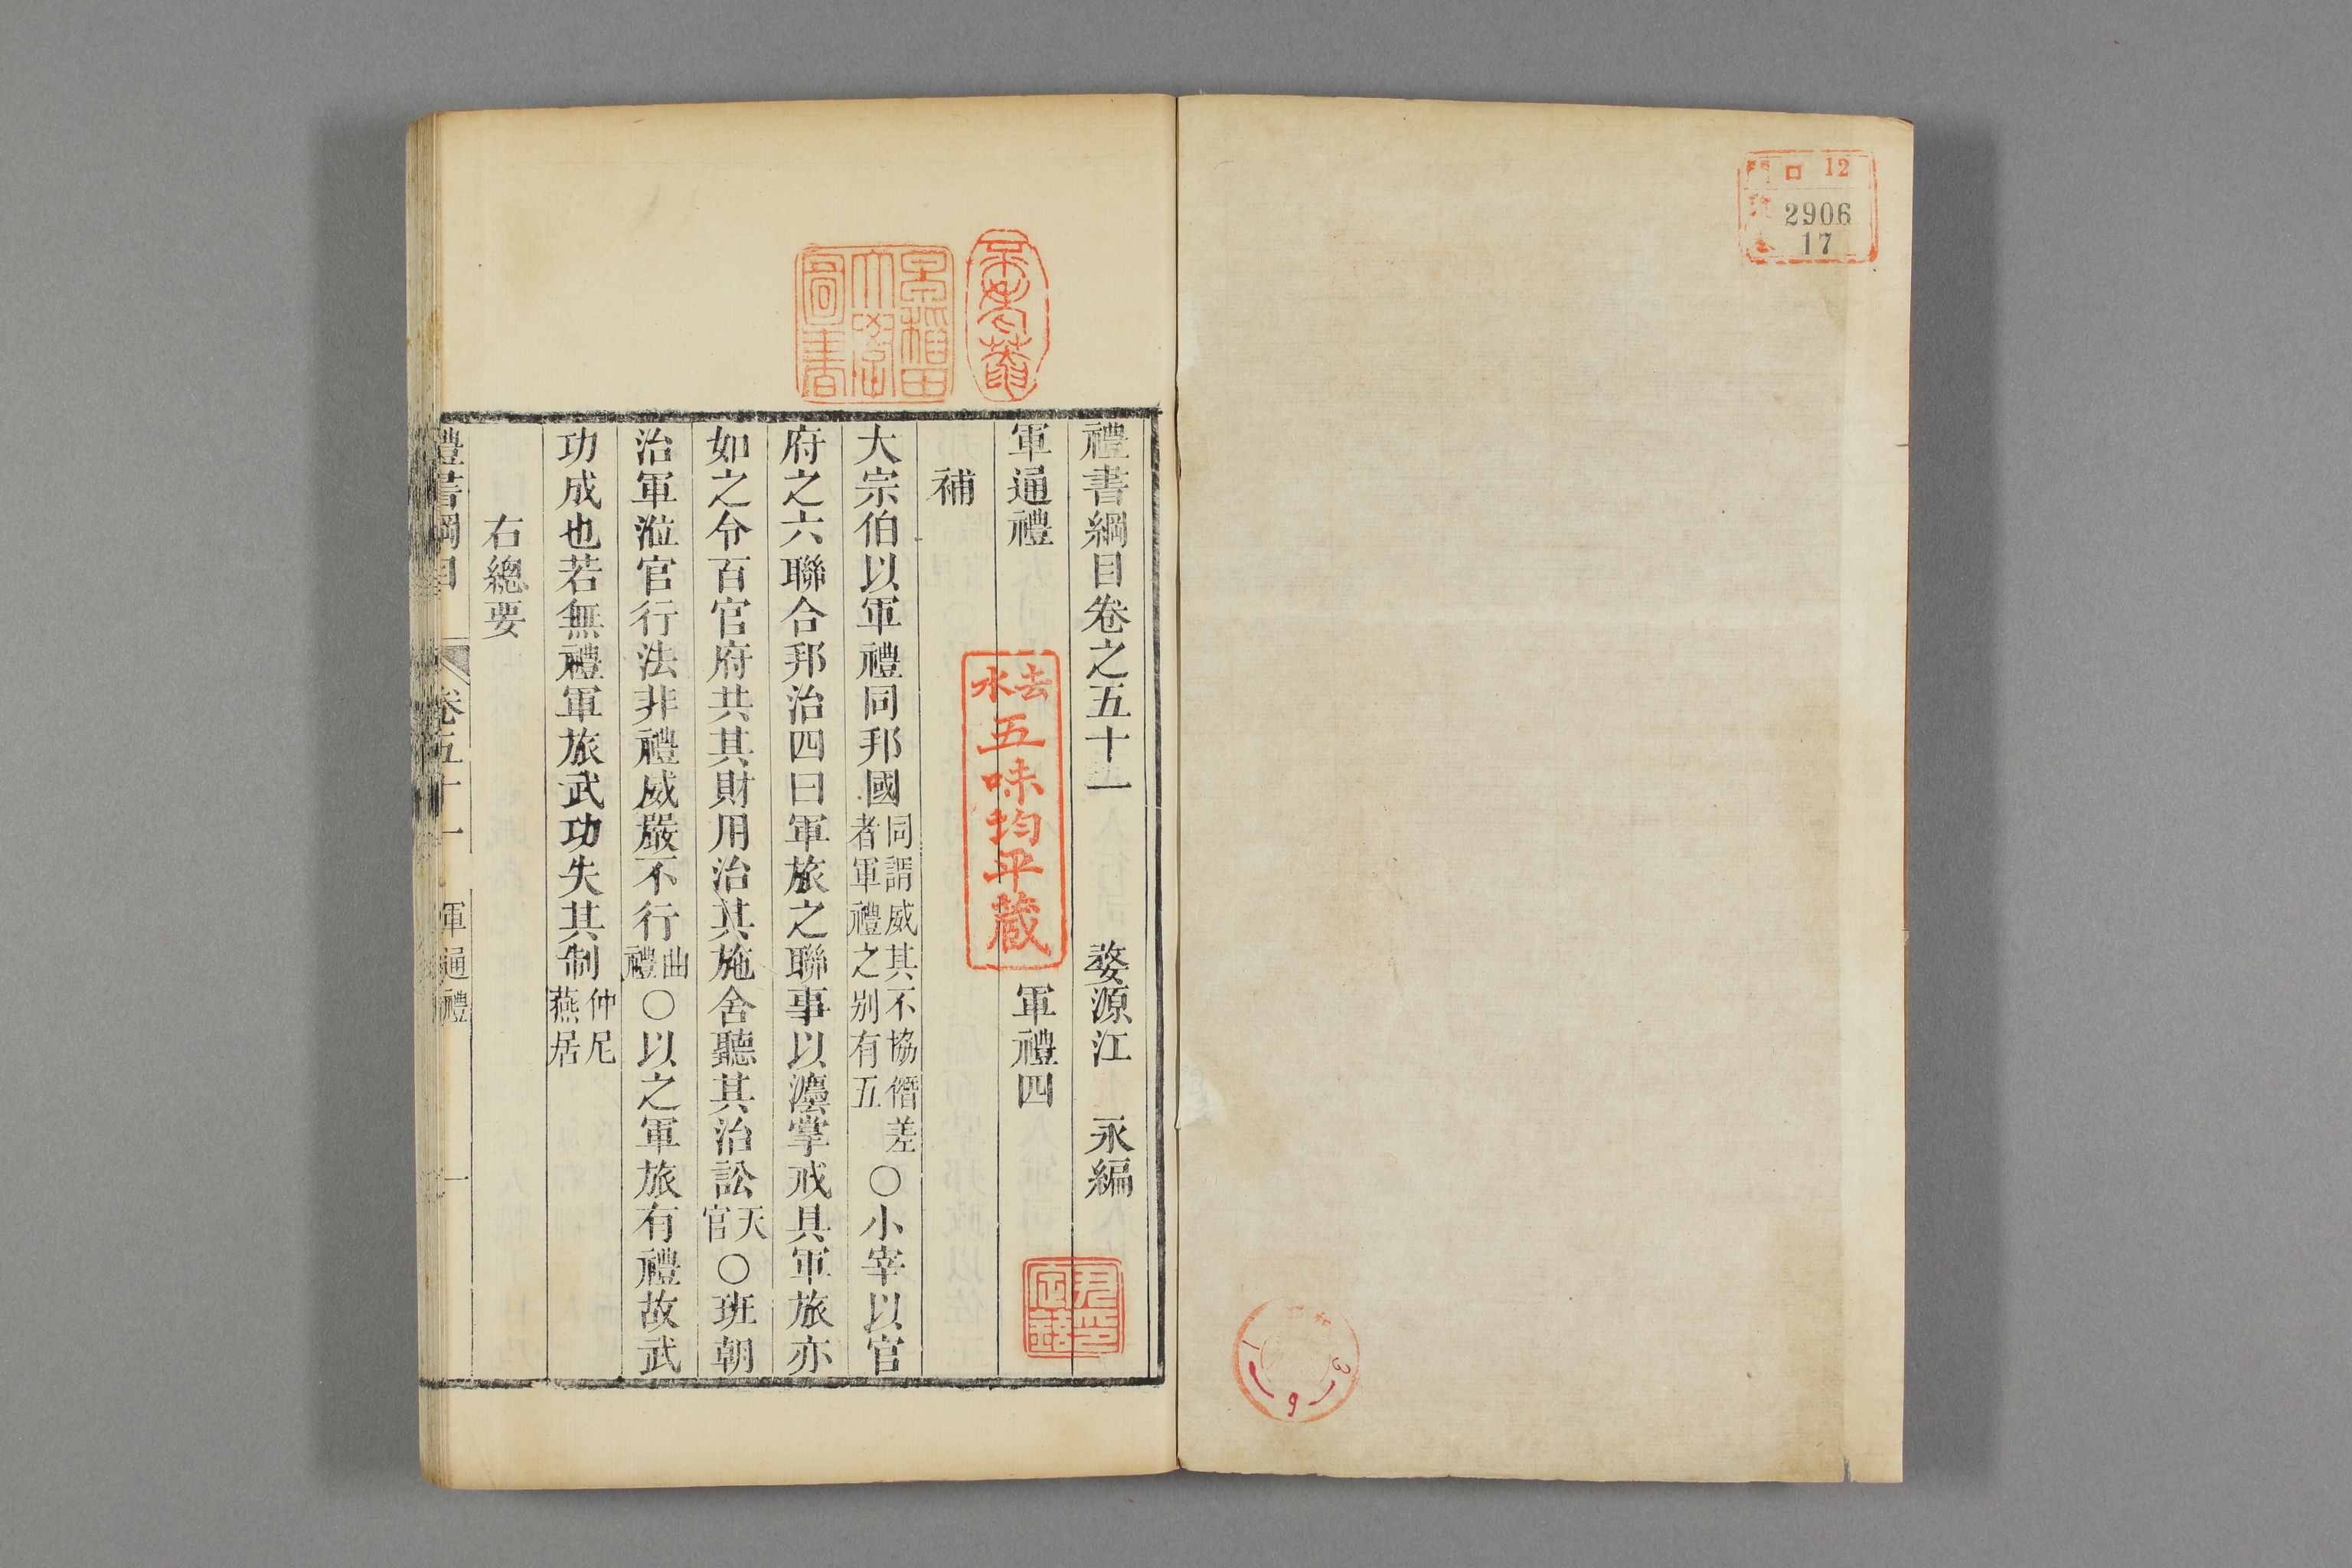 口 12
2906
17
禮書綱目卷之五十一　婺源江　永編
軍通禮　軍禮四
補
大宗伯以軍禮同邦國同謂威其不協僭差者軍禮之别有五○小宰以官
府之六聯合邦治四曰軍旅之聯事以灋掌戒具軍旅亦
如之令百官府共其財用治其施舍聽其治訟天官○班朝
治軍涖官行法非禮威嚴不行曲禮○以之軍旅有禮故武
功成也若無禮軍旅武功失其制仲尼燕居
右總要
禮書綱目　卷五十一　軍通禮　一
早稻田大學圖書
去水
五味均平蔵